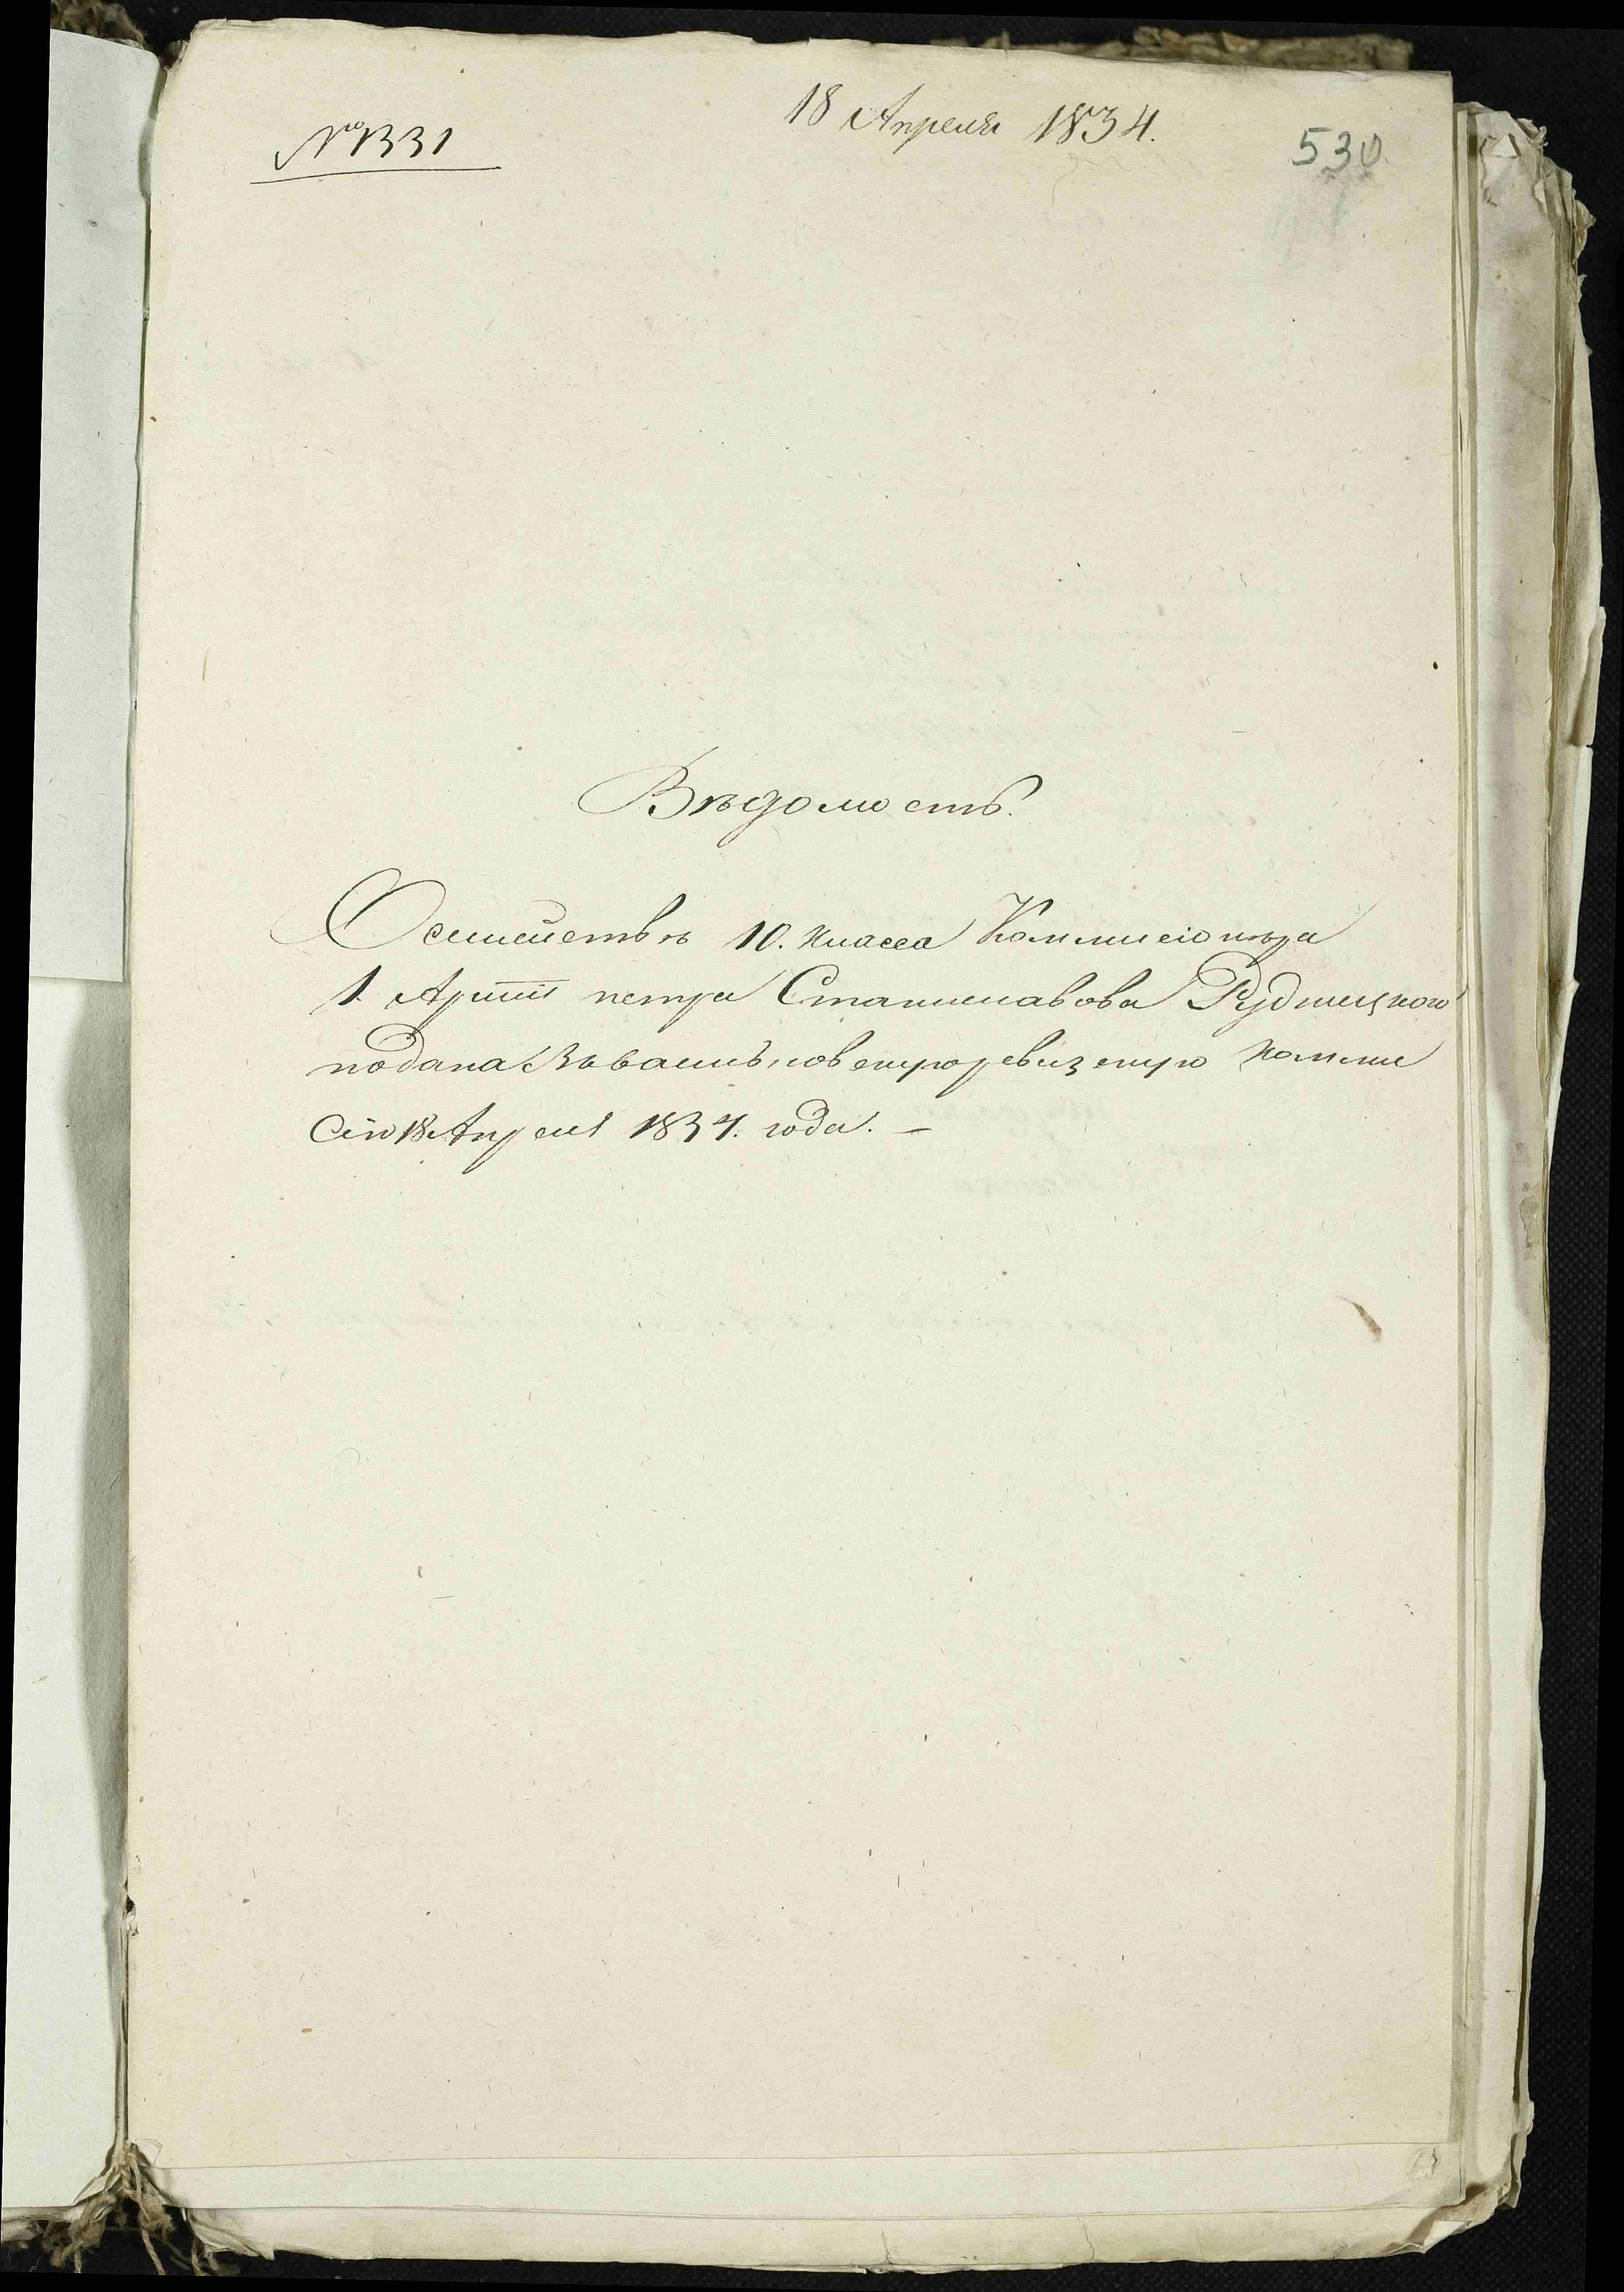 № 1331
18 Апреля 1834.
530.
Вѣдомость.
О семействѣ 10. класса Коммисіонера
1. Арміи петра Станиславова Рудницкого
подана Въ васильковскую ревизскую комми
Сію 18 Апреля 1834. года. —